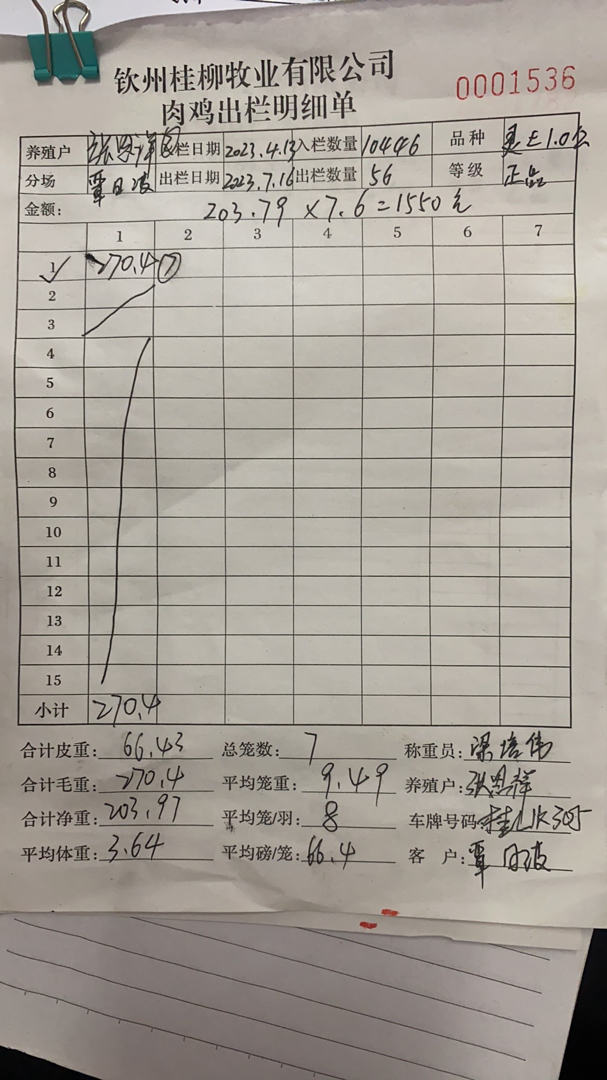 钦州桂柳牧业有限公司
0001536
肉鸡出栏明细单
养殖户 入栏日期 2023.4.13 入栏数量 10446 品种
分场 覃日波 出栏日期 2023.7.16 出栏数量 56 等级 正品
金额: 203.79×7.6=1550元
1 2 3 4 5 6 7
1 270.4 ⑦
2
3
4
5
6
7
8
9
10
11
12
13
14
15
小计 270.4
合计皮重: 66.43 总笼数: 7 称重员: 梁培伟
合计毛重: 270.4 平均笼重: 9.49 养殖户: 张恩祥
合计净重: 203.97 平均笼/羽: 8 车牌号码:
平均体重: 3.64 平均磅/笼: 66.4 客 户: 覃日波